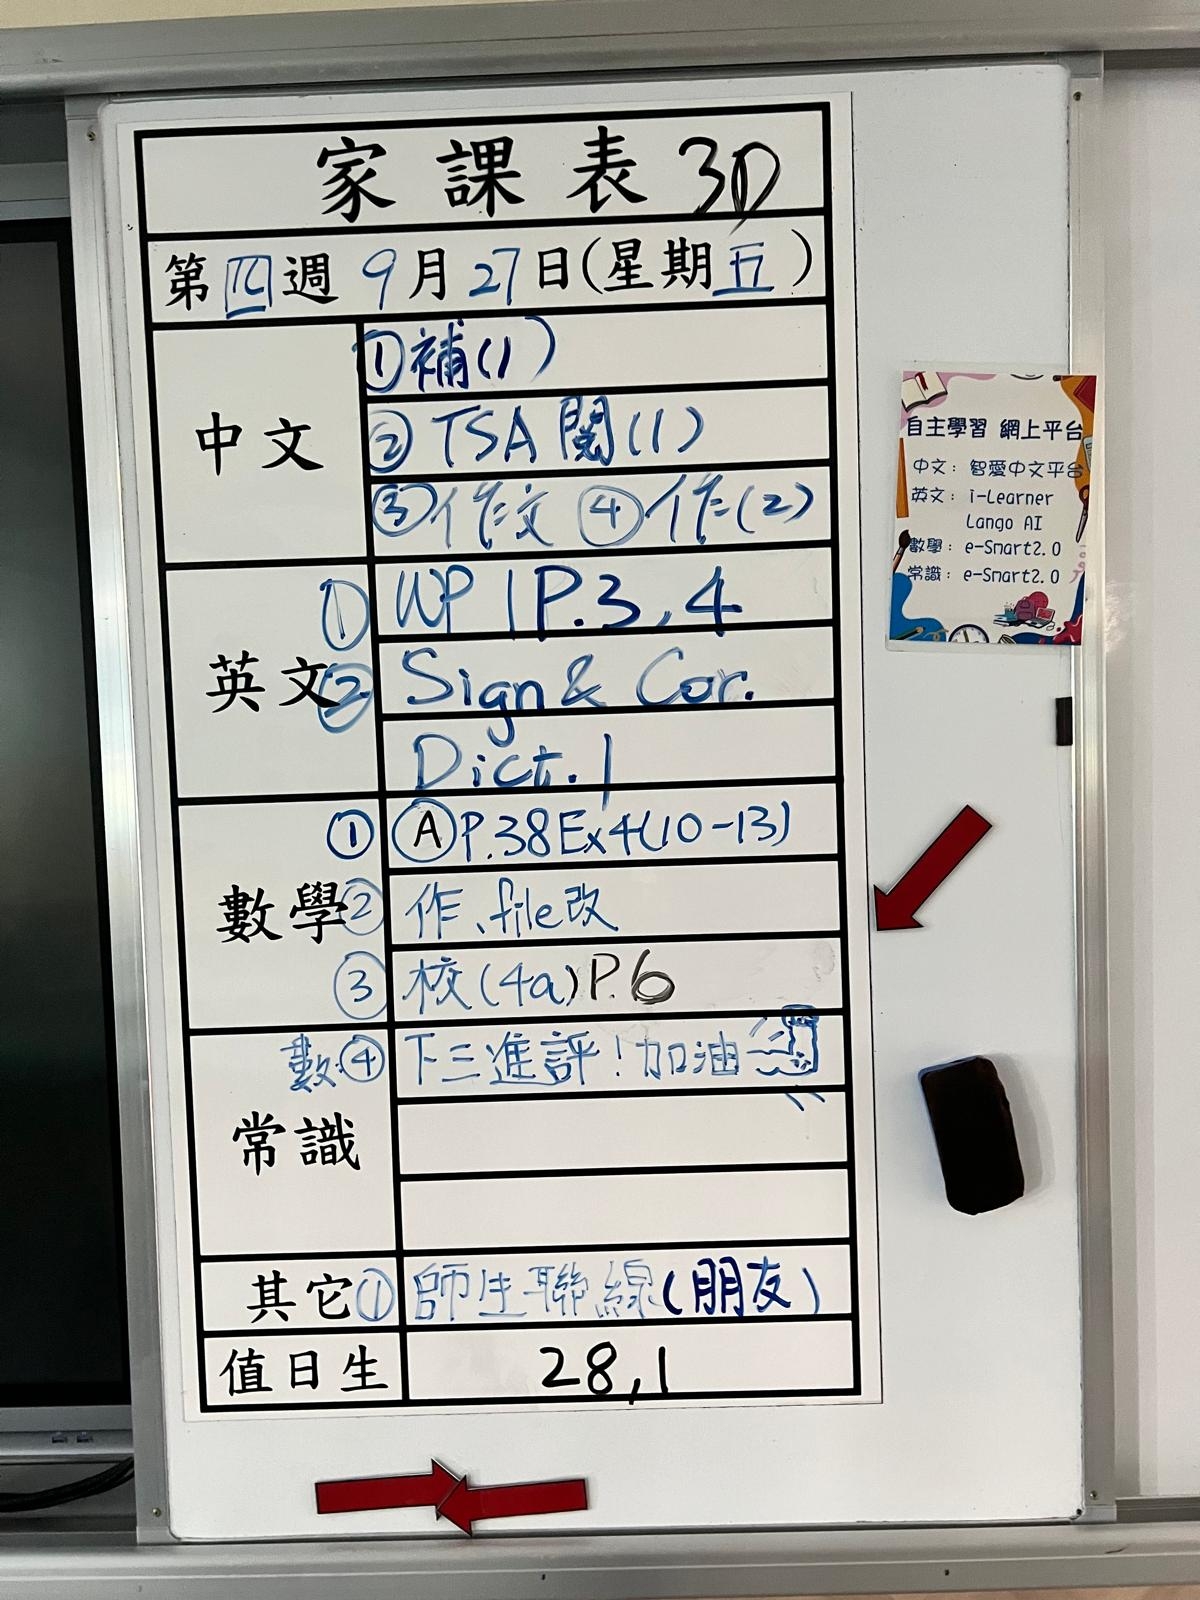 家課表 3D
第四週 9月27日(星期五)
中文
①補(1)
②TSA 閱(1)
③作文 ④作(2)
英文
① WP 1 P.3,4
② Sign & Cor.
Dict. 1
數學
① Ⓐ P.38 Ex4(10-13)
② 作、file改
③ 校(4a) P.6
常識
數④ 下三進評!加油
其它 ① 師生聯線(朋友)
值日生 28,1
自主學習 網上平台
中文: 智愛中文平台
英文: i-Learner
Lango AI
數學: e-Smart2.0
常識: e-Smart2.0